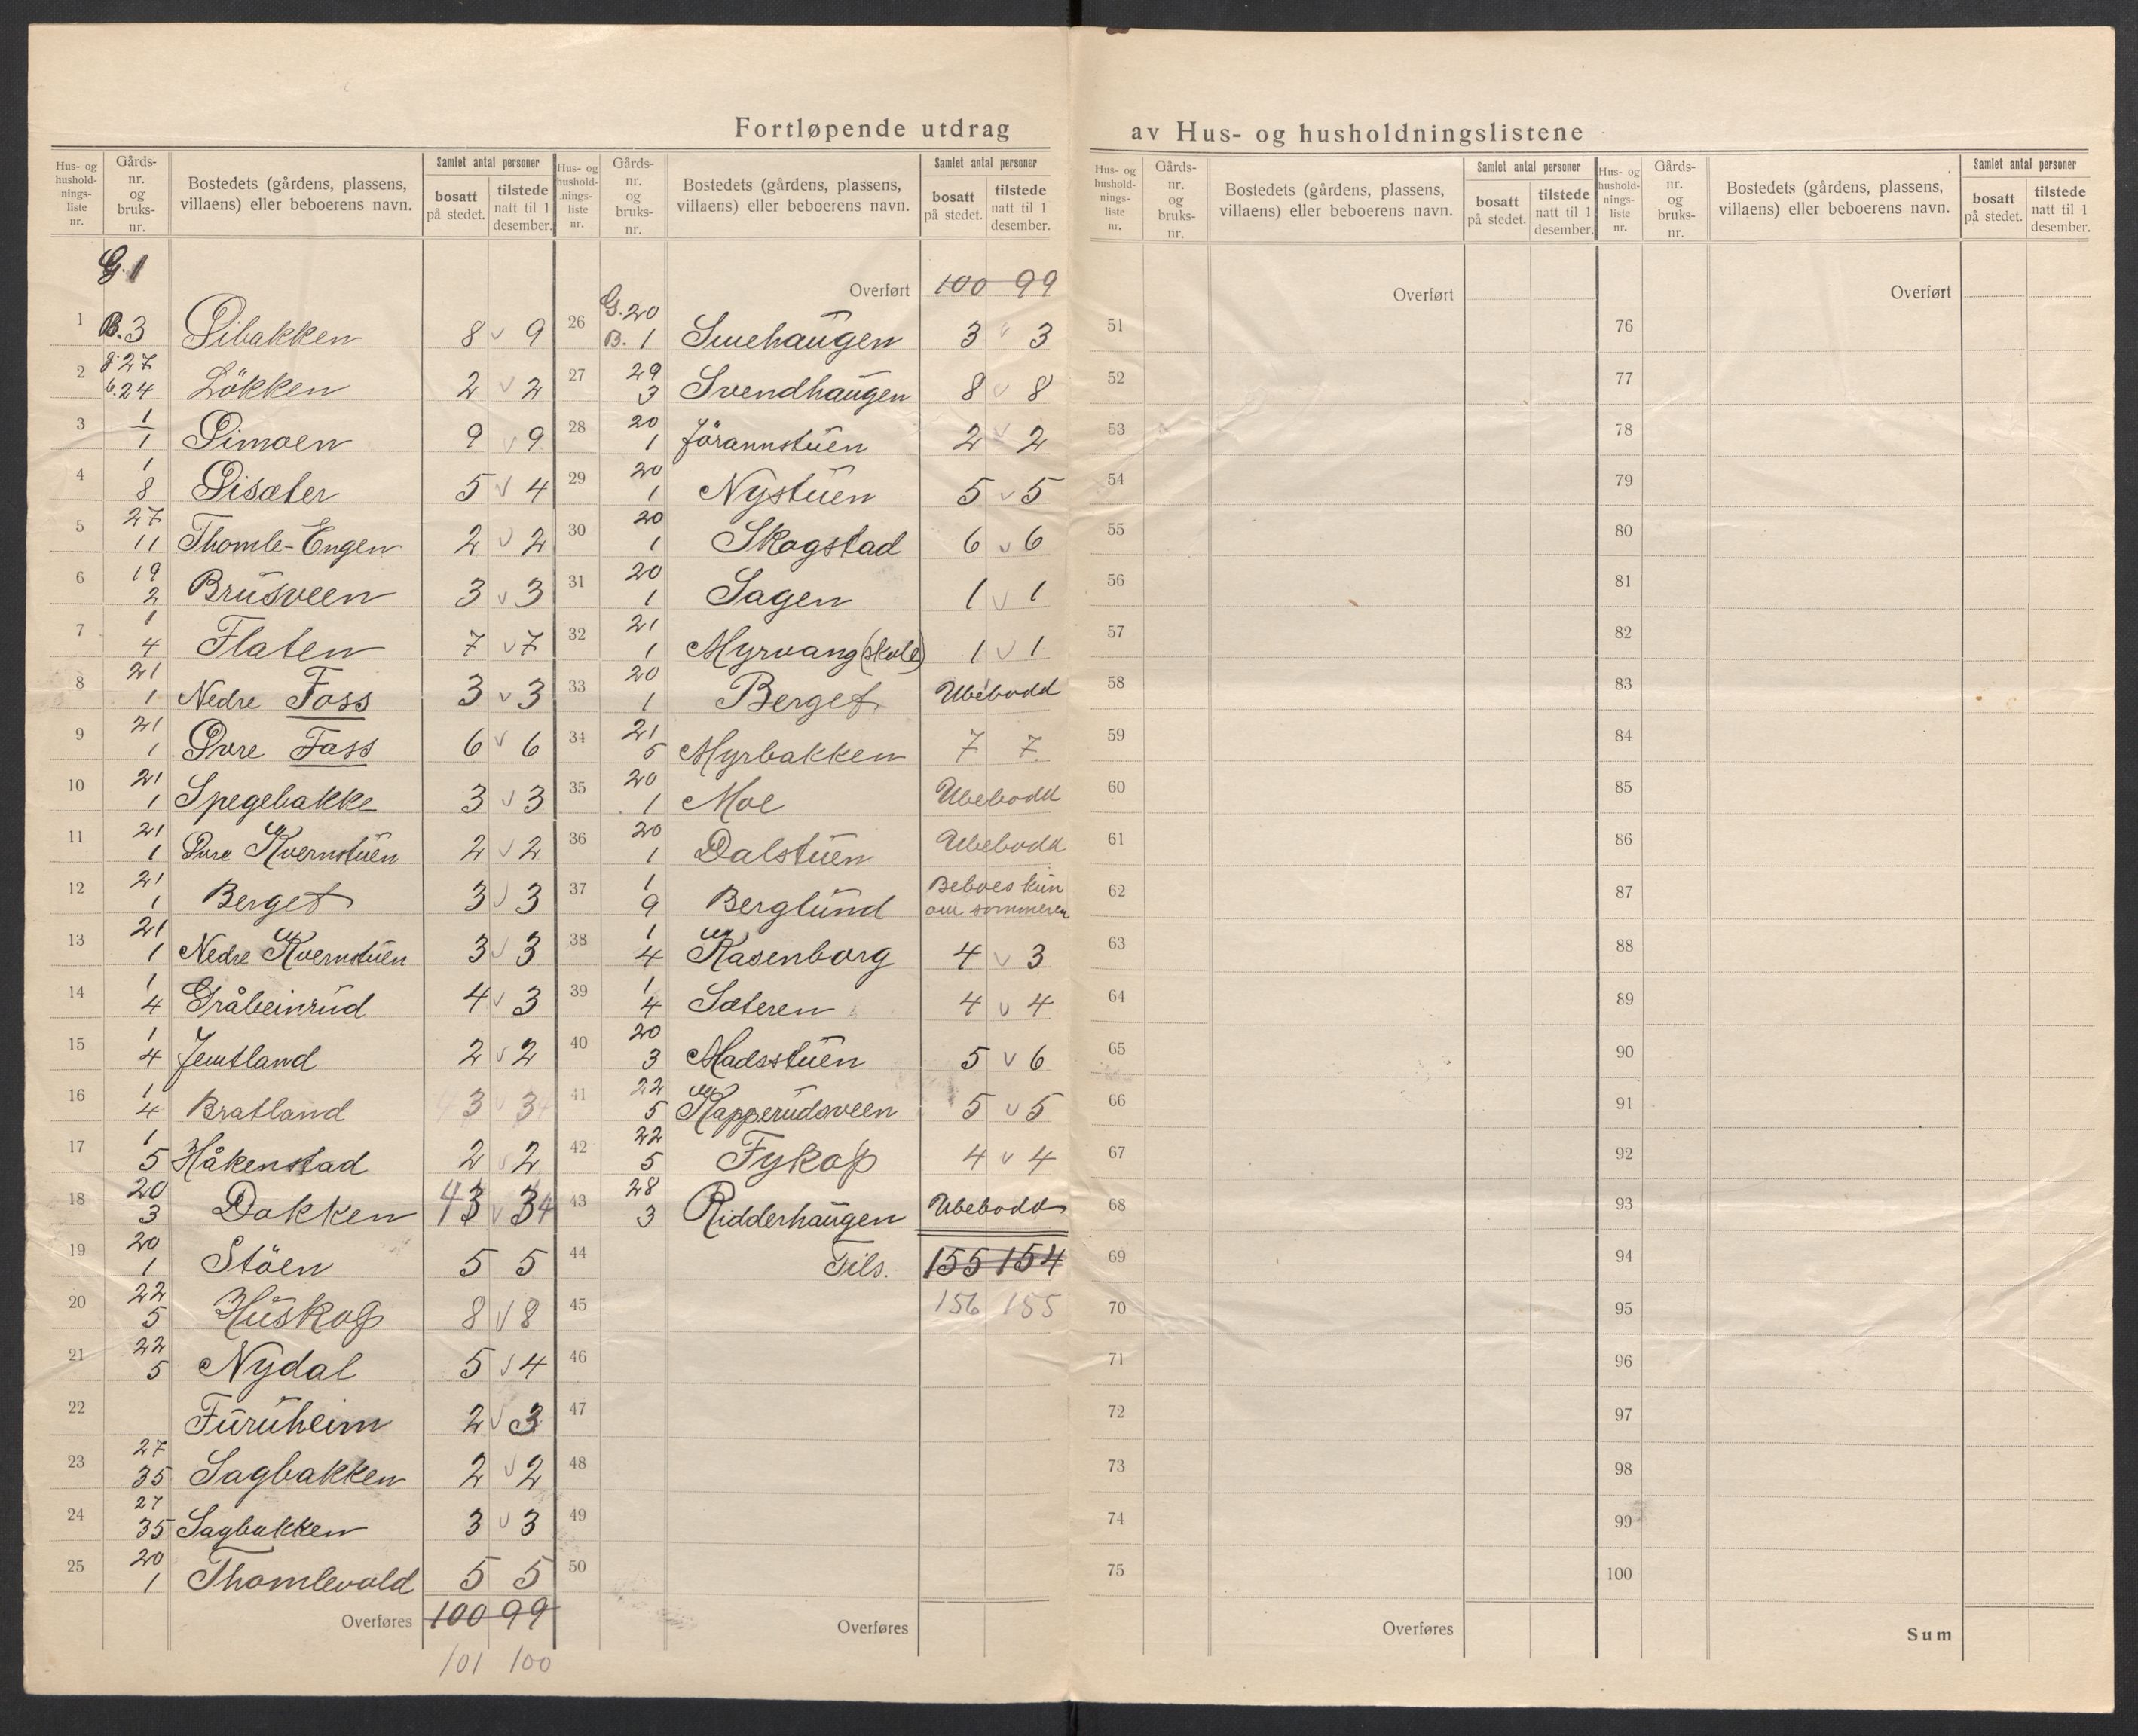 Fortløpende utdrag av Hus- og husholdningslistene
Hus- og husholdnings-liste nr. | Gårds-nr. og bruks-nr. | Bostedets (gårdens, plassens, villaens) eller beboerens navn. | Samlet antal personer | bosatt på stedet. | tilstede natt til 1 desember.
G. 1
1 B. 3 Libakken 8 v 9
2 g. 27 b. 24 Lökken 2 v 2
3 1 1 Limoen 9 v 9
4 1 8 Lisæter 5 v 4
5 27 11 Thomle-Engen 2 v 2
6 19 2 Brusveen 3 v 3
7 1 4 Flaten 7 v 7
8 21 1 Nedre Foss 3 v 3
9 21 1 Øvre Foss 6 v 6
10 21 1 Spegebakke 3 v 3
11 21 1 Øvre Kvernstuen 2 v 2
12 21 1 Berget 3 v 3
13 21 1 Nedre Kvernstuen 3 v 3
14 1 4 Gråbeinrud 4 v 3
15 1 4 Jemtland 2 v 2
16 1 4 Bratland 3 v 3
17 1 5 Håkenstad 2 v 2
18 20 3 Dokken 4 3 v 3 4
19 20 1 Stöen 5 5
20 22 5 Huskop 8 v 8
21 22 5 Nydal 5 v 4
22 Furuheim 2 v 3
23 27 35 Sagbakken 2 v 2
24 27 35 Sagbakken 3 v 3
25 20 1 Thomlevold 5 5
Overføres 100 99
101 100
Hus- og husholdnings-liste nr. | Gårds-nr. og bruks-nr. | Bostedets (gårdens, plassens, villaens) eller beboerens navn. | Samlet antal personer | bosatt på stedet. | tilstede natt til 1 desember.
Overført 100 99
26 G. 20 B. 1 Smehaugen 3 v 3
27 29 3 Svendhaugen 8 v 8
28 20 1 Jörannstuen 2 v 2
29 20 1 Nystuen 5 v 5
30 20 1 Skogstad 6 v 6
31 20 1 Sagen 1 v 1
32 21 1 Myrvang (skole) 1 v 1
33 20 1 Berget Ubebodd
34 21 5 Myrbakken 7 7
35 20 1 Moe Ubebodd
36 20 1 Dalstuen Ubebodd
37 1 9 Berglund Beboes kun om sommeren
38 1 4 Rasenborg 4 v 3
39 1 4 Sæteren 4 v 4
40 20 3 Madsstuen 5 v 6
41 22 5 Kapperudsveen 5 v 5
42 22 5 Fykop 4 v 4
43 28 3 Ridderhaugen Ubebodd
44 Tils. 155 154
45 156 155
46
47
48
49
50
Overføres
Hus- og husholdnings-liste nr. | Gårds-nr. og bruks-nr. | Bostedets (gårdens, plassens, villaens) eller beboerens navn. | Samlet antal personer | bosatt på stedet. | tilstede natt til 1 desember.
Overført
51
52
53
54
55
56
57
58
59
60
61
62
63
64
65
66
67
68
69
70
71
72
73
74
75
Overføres
Hus- og husholdnings-liste nr. | Gårds-nr. og bruks-nr. | Bostedets (gårdens, plassens, villaens) eller beboerens navn. | Samlet antal personer | bosatt på stedet. | tilstede natt til 1 desember.
Overført
76
77
78
79
80
81
82
83
84
85
86
87
88
89
90
91
92
93
94
95
96
97
98
99
100
Sum